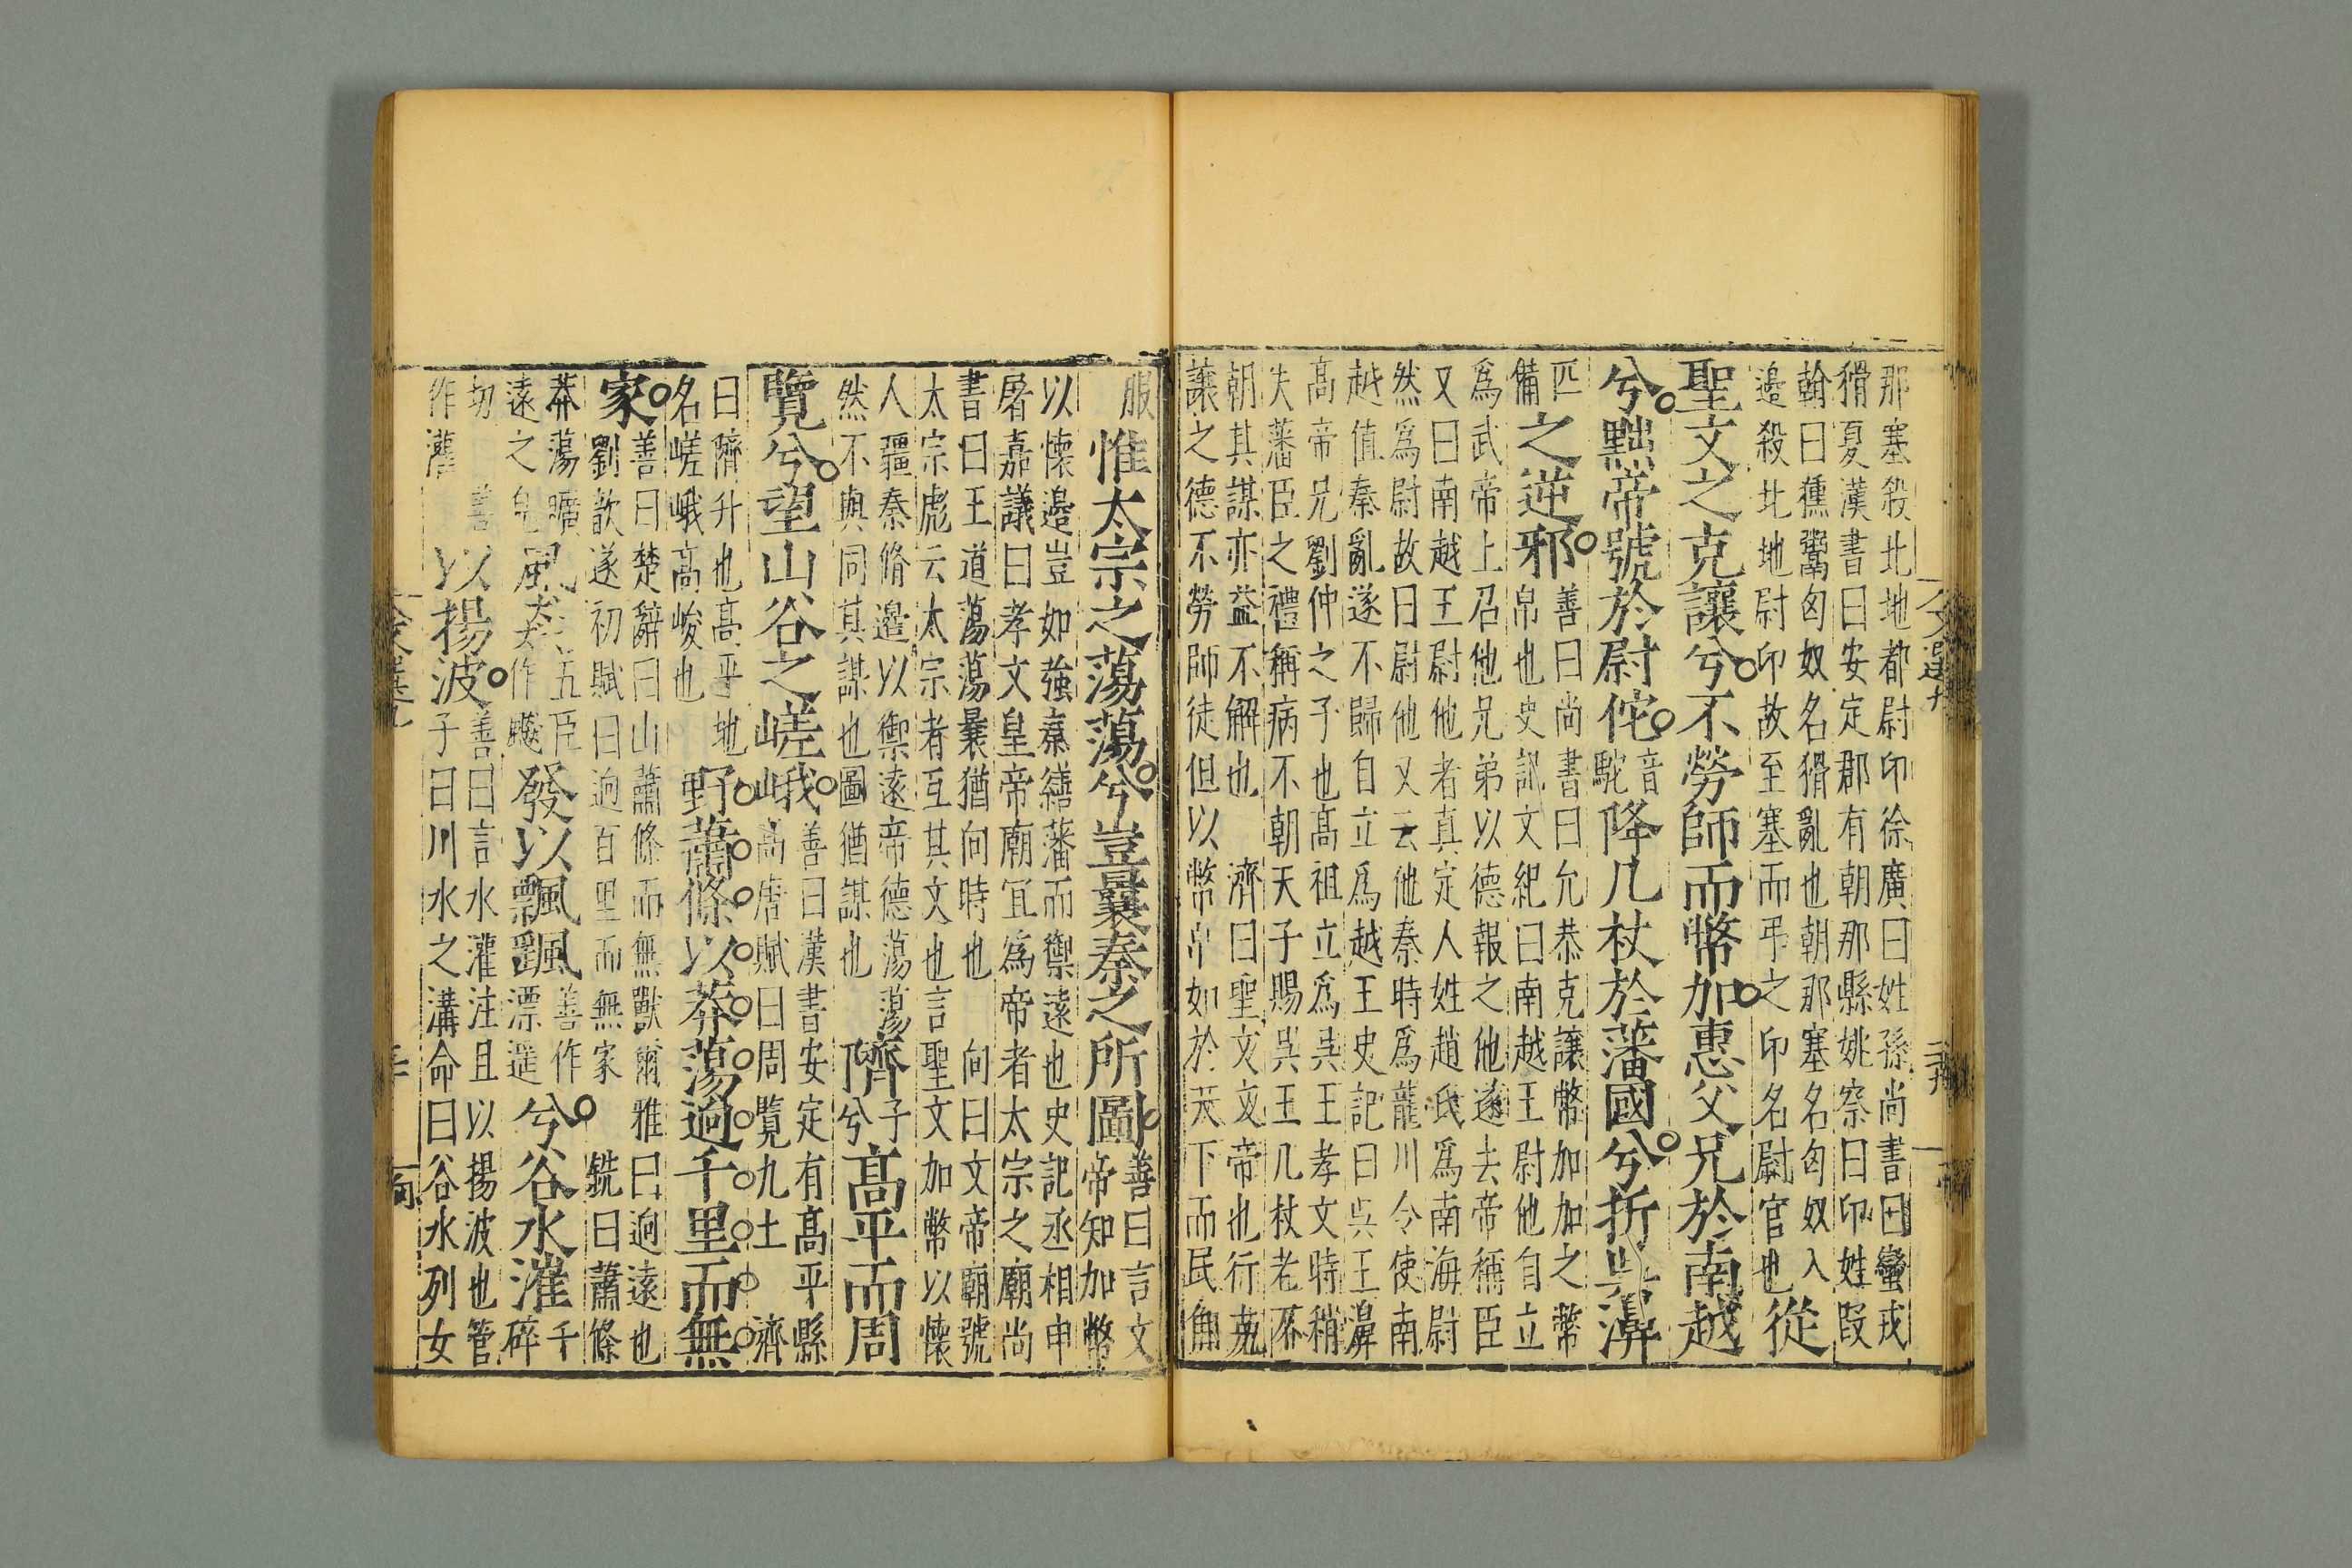 那塞殺北地都尉印徐廣曰姓孫尚書曰蠻戎
猾夏漢書曰安定郡有朝那縣姚察曰印姓叚
翰曰獯鬻匈奴名猾亂也朝那塞名匈奴入
邉殺北地尉印故至塞而弔之印名尉官也
從
聖文之克讓兮不勞師而幣加惠父兄於南越
兮黜帝號於尉佗
音
駝
降几杖於藩國兮折吳濞
匹
備
之逆邪
善曰尚書曰允恭克讓幣加加之幣
帛也史記文紀曰南越王尉他自立
爲武帝上召他兄弟以德報之他遂去帝稱臣
又曰南越王尉他者真定人姓趙氏爲南海尉
然爲尉故曰尉他又云他秦時爲龍川令使南
越值秦亂遂不歸自立爲越王史記曰吳王濞
髙帝兄劉仲之子也髙祖立爲吳王孝文時稍
失藩臣之禮稱病不朝天子賜吳王几杖老不
朝其謀亦益不解也 濟曰聖文文帝也行尭
讓之德不勞師徒但以幣帛如於天下而民
服
惟太宗之蕩蕩兮豈曩秦之所圖
善曰言文
帝知加幣
以懷邉豈如強秦繕藩而禦遠也史記丞相申
屠嘉議曰孝文皇帝廟冝爲帝者太宗之廟尚
書曰王道蕩蕩曩猶向時也 向曰文帝廟號
太宗彪云太宗者互其文也言聖文加幣以懷
人疆秦脩邉以禦遠帝德蕩蕩
然不與同其謀也圖猶謀也
隮
子
兮
髙平而周
覽兮望山谷之嵯峨
善曰漢書安定有髙平縣
髙唐賦曰周覽九土 濟
曰隮升也髙平地
名嵯峨髙峻也
野蕭條以莽蕩迥千里而無
家
善曰楚辭曰山蕭條而無獸爾雅曰迥遠也
劉歆遂初賦曰迥百里而無家 銑曰蕭條
莽蕩曠
遠之皃
風猋
五臣
作飇
發以飄颻
善作
漂遥
兮谷水漼
千
碎
切 善
作灌
以揚波
善曰言水灌注且以揚波也管
子曰川水之溝命曰谷水列女